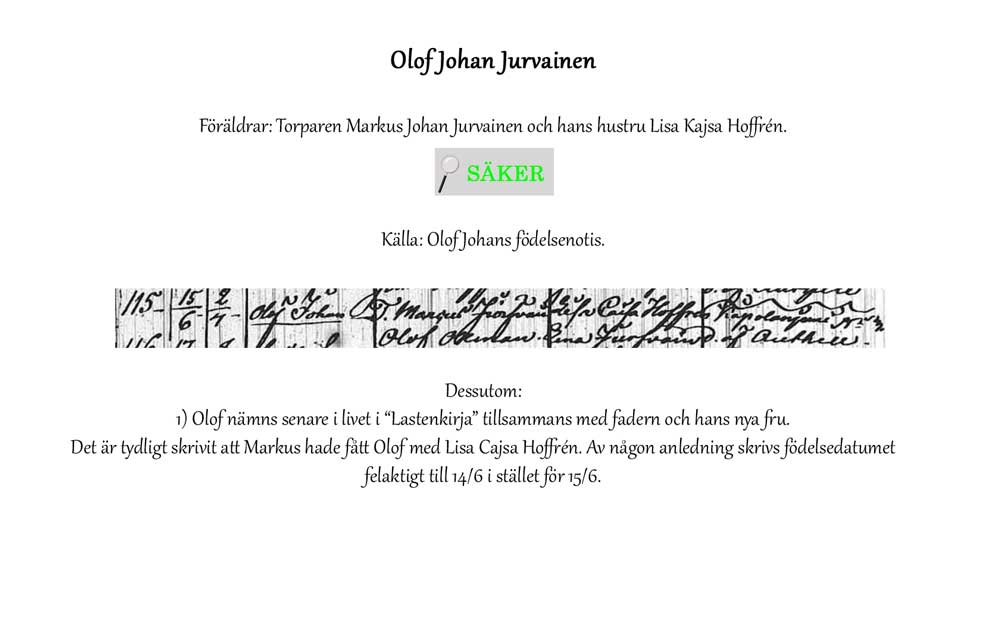 Olof Johan Jurvainen
Föräldrar: Torparen Markus Johan Jurvainen och hans hustru Lisa Kajsa Hoffrén.
SÄKER
Källa: Olof Johans födelsenotis.
115 15/6 2/4 Olof Johan T. Marcus Lisa Caisa Hoffrén
Olof
Dessutom:
1) Olof nämns senare i livet i “Lastenkirja” tillsammans med fadern och hans nya fru.
Det är tydligt skrivit att Markus hade fått Olof med Lisa Cajsa Hoffrén. Av någon anledning skrivs födelsedatumet
felaktigt till 14/6 i stället för 15/6.